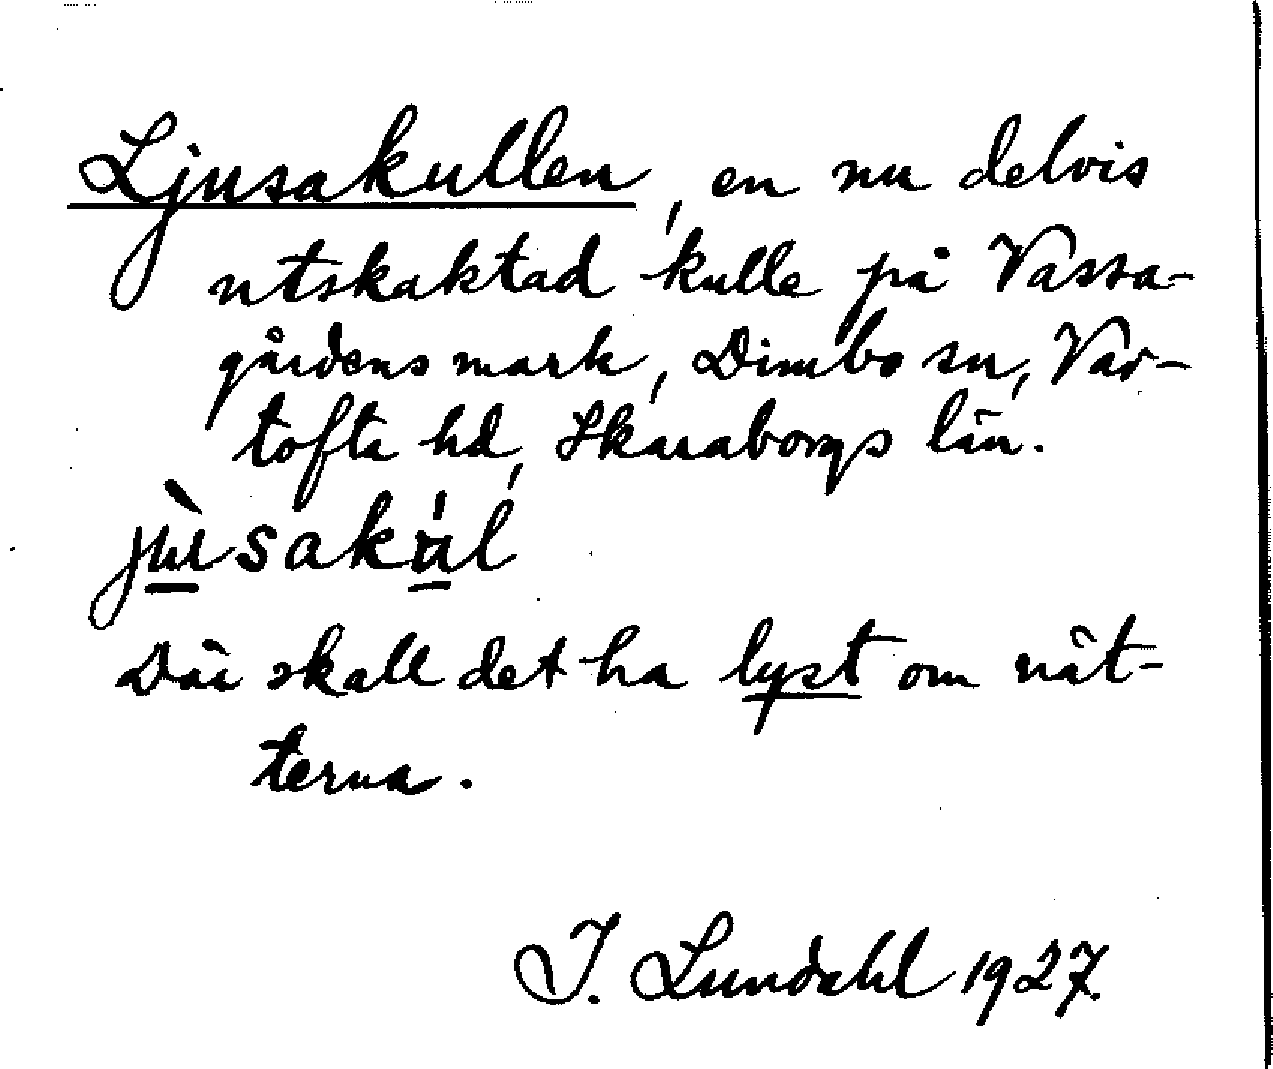 Ljusakullen, en nu delvis
utskaktad kulle på Vassa-
gårdens mark, Dimbo sn, Var-
tofta hd, Skaraborgs län.
jùsakúl
Där skall det ha lyst om nät-
terna.
I. Lundahl 1927.